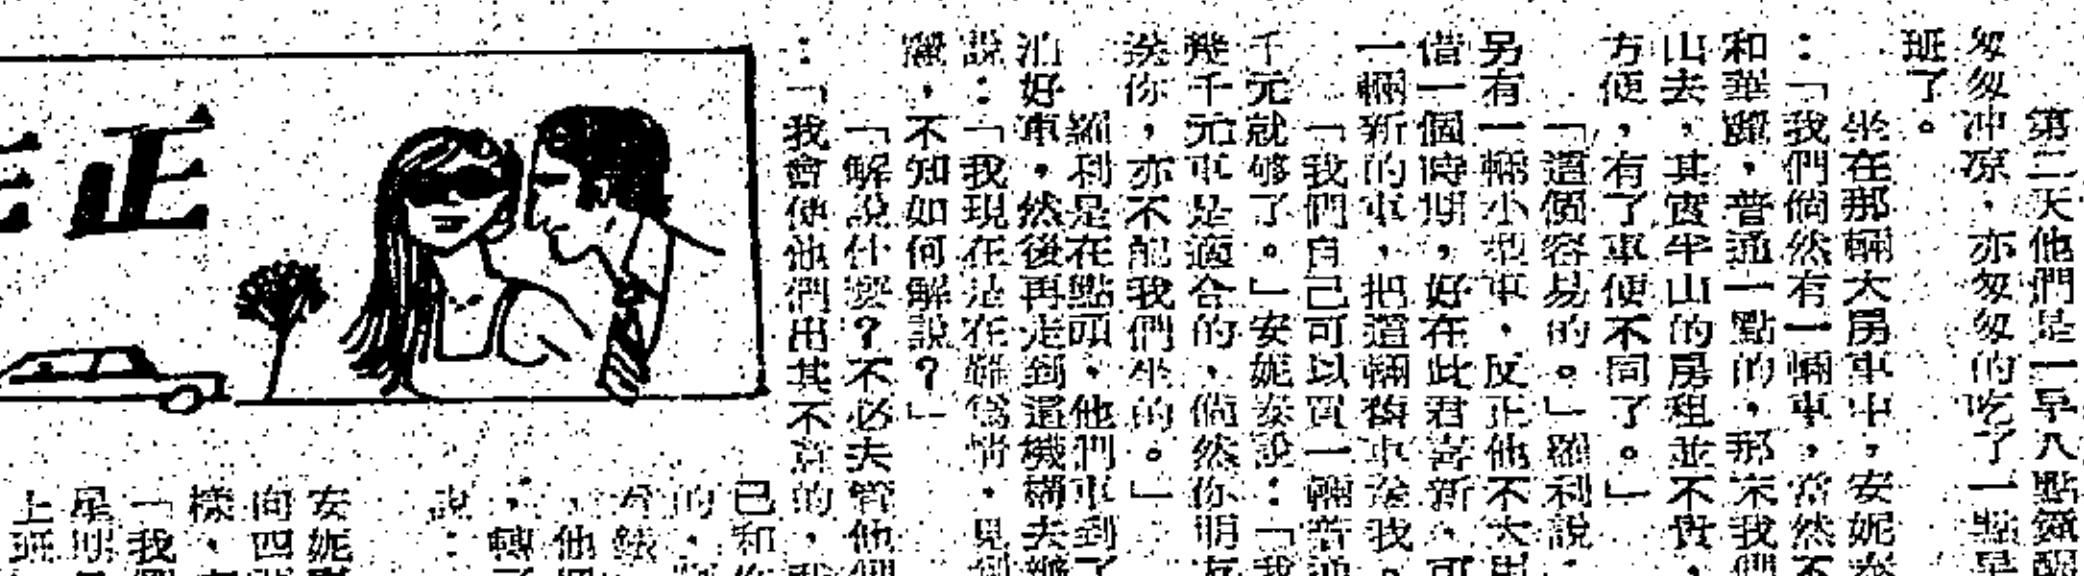 第二天他們是一早八點鐘醒
匆匆冲凉，亦匆匆的吃了一點早
班了。
坐在那輛大房車中，安妮泰
：「我們倘然有一輛車，當然不
和華麗，普通一點的，那末我們
山去，其實半山的房租並不貴，
方便，有了車便不同了。」
「這個容易的。」羅利說
另有一輛小型車，反正他不大用
借一個時期，好在此君喜新，可
一輛新的車，把這輛舊車送我。
「我們自己可以買一輛，
千元就够了。」安妮泰說：「我
幾千元車是適合的，倘然你朋友
送你，亦不配我們坐的。」
羅利是在點頭，他們車到了
泊好車，然後再走到這機構去辦
說：「我現在是在，見到
，不知如何解說？」
「解說什麼？不必去管他們
：「我會使他們出其不意的，我
正
已和你
的，
，他們
，轉了
說：
安妮
向四
樣，
「我們
星期
上班